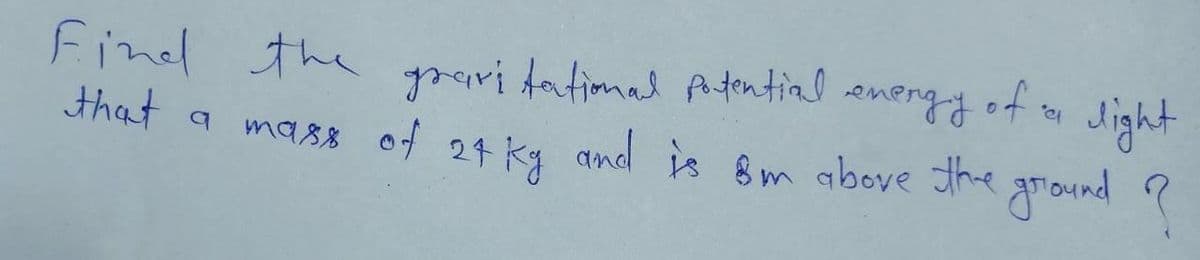 Find the gravitational potential energy of a light
that a mass of 24 kg and is 8m above the ground ?